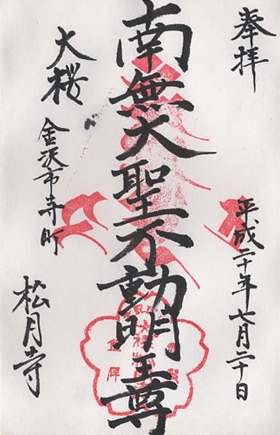 奉拝
平成二十年七月二十日
南無大聖不動明王尊
大桜
金沢市寺町
松月寺